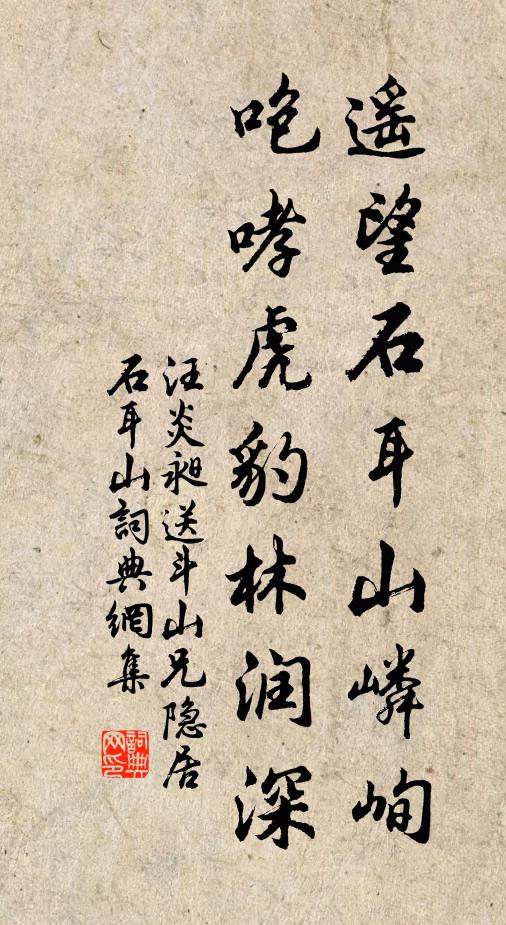 遥望石耳山嶙峋
咆哮虎豹林润深
汪炎昶送斗山兄隐居
石耳山詞典網集
詞典网印